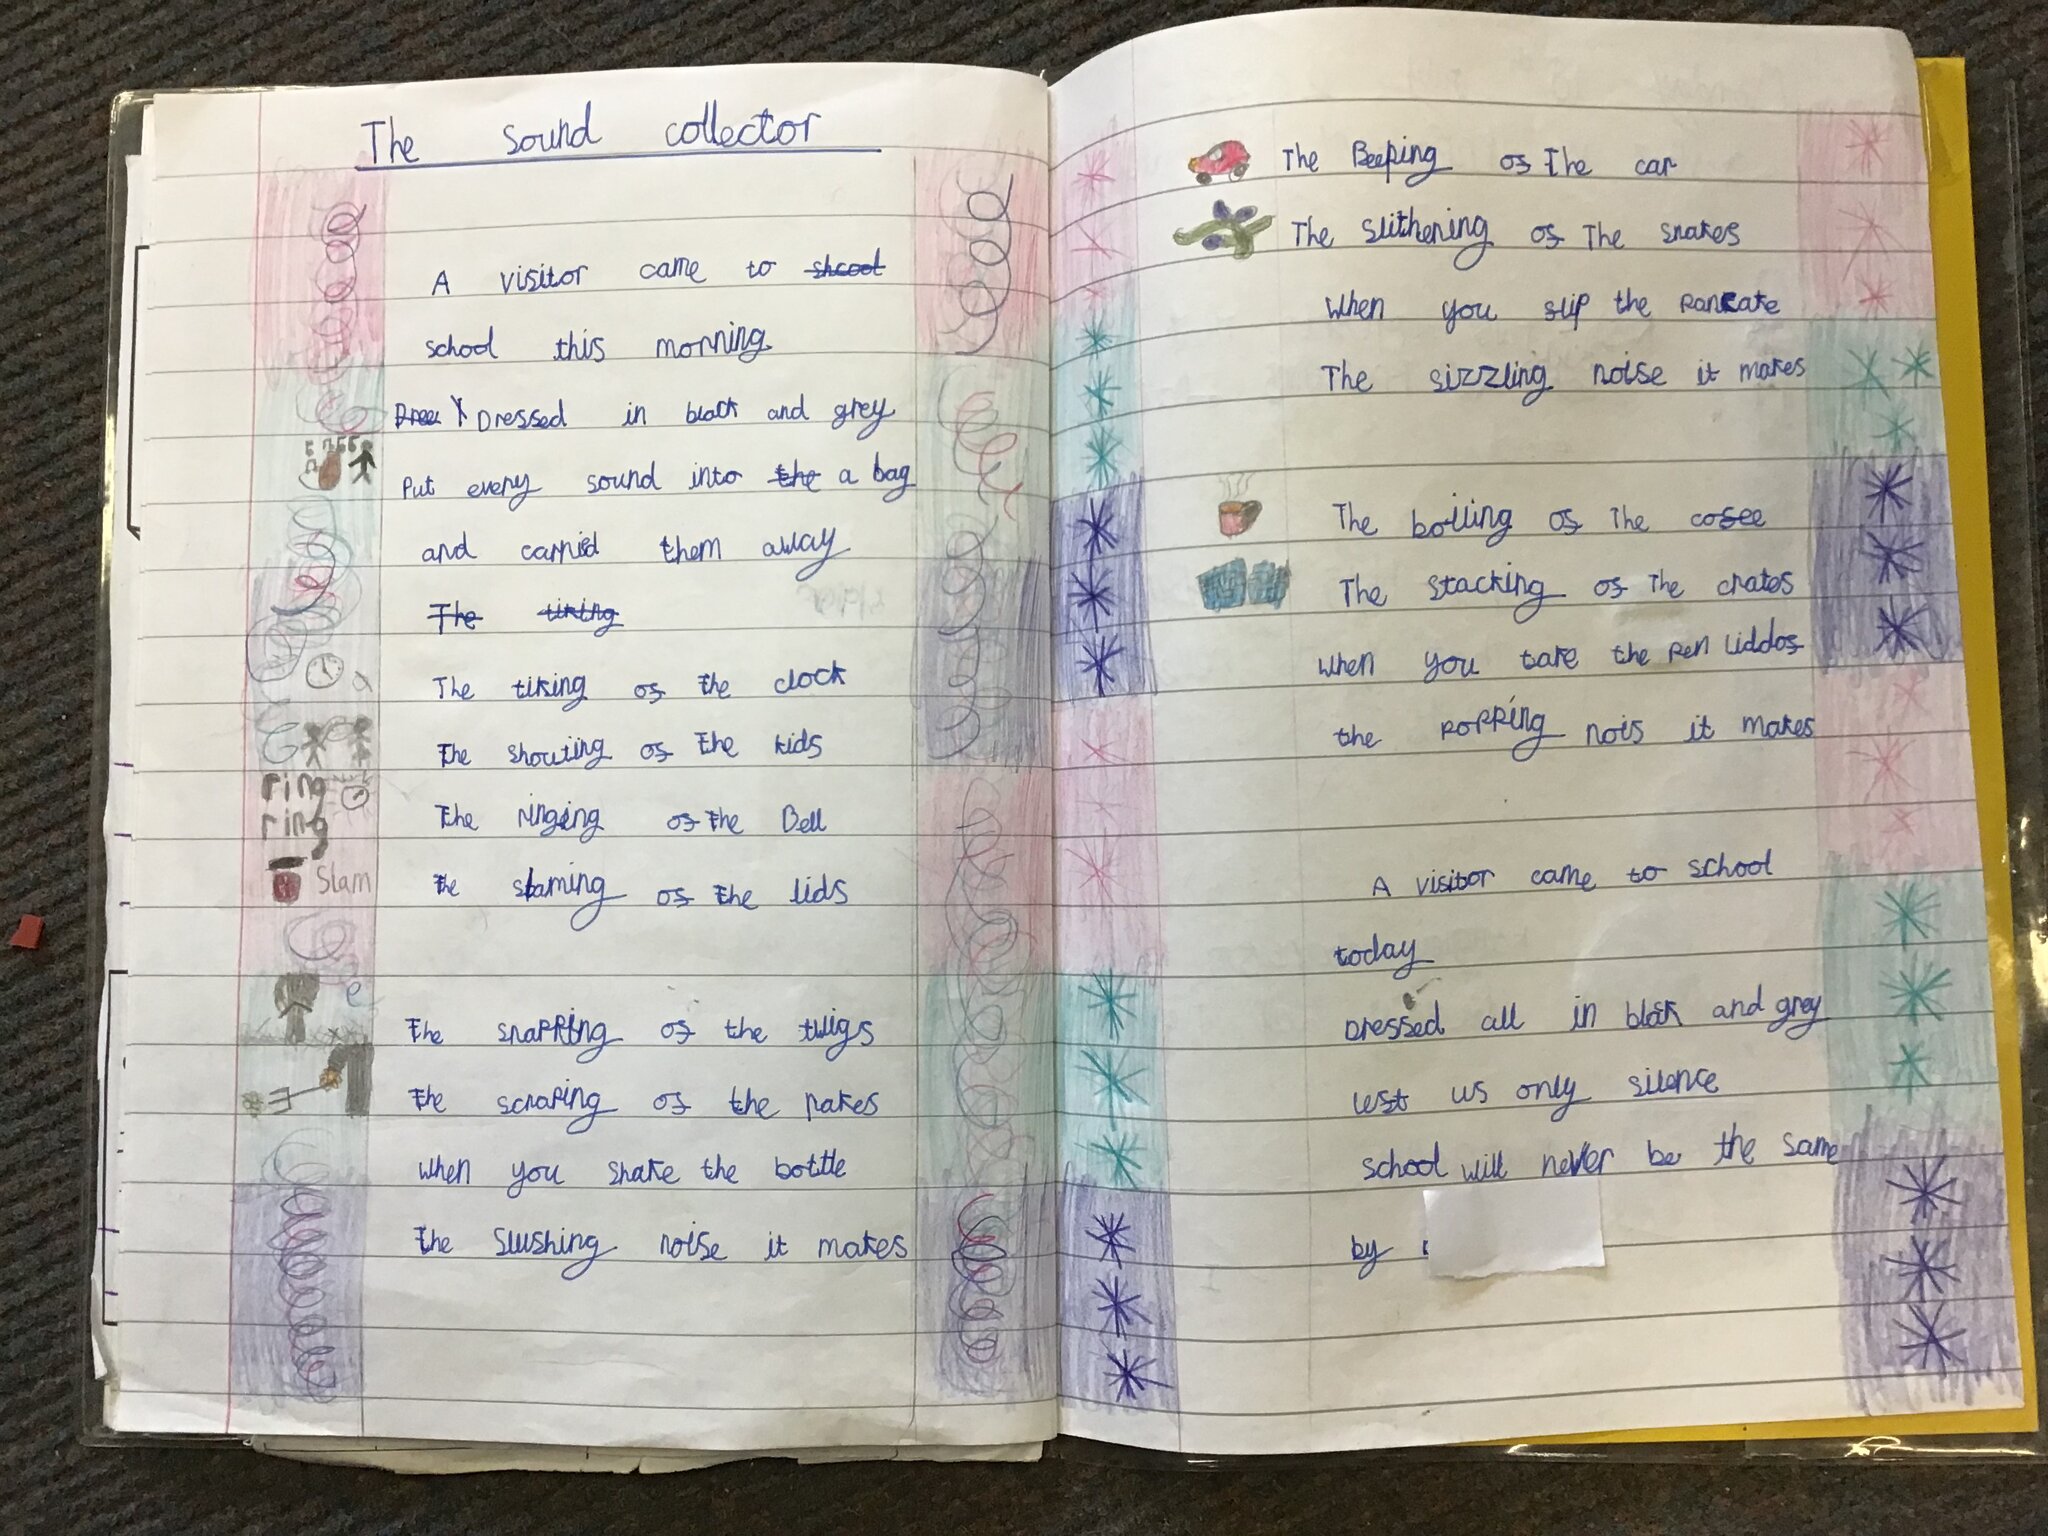 The sound collector
A visitor came to shcool
school this morning
Dree Dressed in black and grey
Put every sound into the a bag
and carried them away
The tiking
The tiking of the clock
The shouting of the kids
The ringing of the Bell
The slaming of the lids
ring
ring
Slam
The snapping of the twigs
The scraping of the rakes
When you shake the bottle
The slushing noise it makes
The Beeping of The car
The Slithering of The snakes
When you slip the pancake
The sizzling noise it makes
The boiling of The cofee
The stacking of The crates
When you take the pen liddos
the popping nois it makes
A visitor came to school
today
Dressed all in black and grey
left us only silence
school will never be the same
by